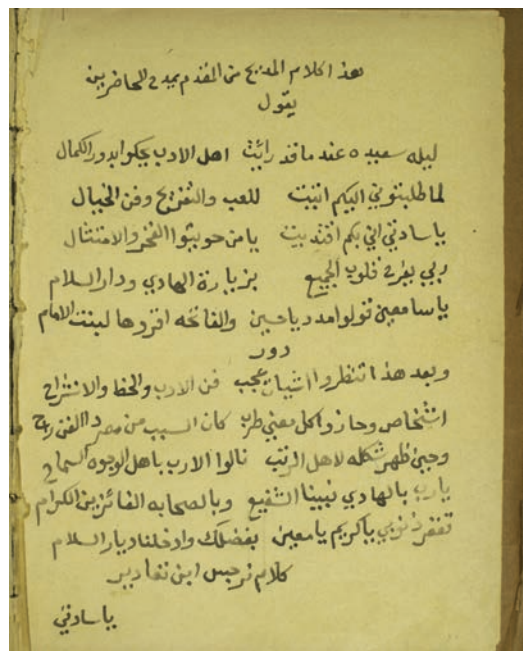 هذا كلام المديح من المقدم يمدح الحاضرين
يقول
ليله سعيده عند ما قد رائت اهل الادب يحكوا بدور الكمال
لما طلبتوني اليكم اتيت للعب والتفريج وفن الخيال
يا سادتي اني بكم اقتديت يا من حويتوا الفخر والامتثال
ربي يفرح قلوب الجميع بزيارة الهادي ودار السلام
يا سامعين قولوا مدد يا حسين والفاتحه اقروها لبنت الامام
دور
وبعد هذا تنظروا اشيات عجب فن الادب والحظ والانشراح
اشخاص وحازوا كل معني طرب كان السبب من مصر الفن راح
وحين ظهر شكله لاهل الرتب نالوا الارب يا هل الوجوه السماح
يا رب بالهادي نبينا الشفيع وبالصحابه الفائزين الكرام
تغفر ذنوبي يا كريم يا معين بفضلك وادخلنا ديار السلام
كلام نرجس ابن تقادير
يا سادتي